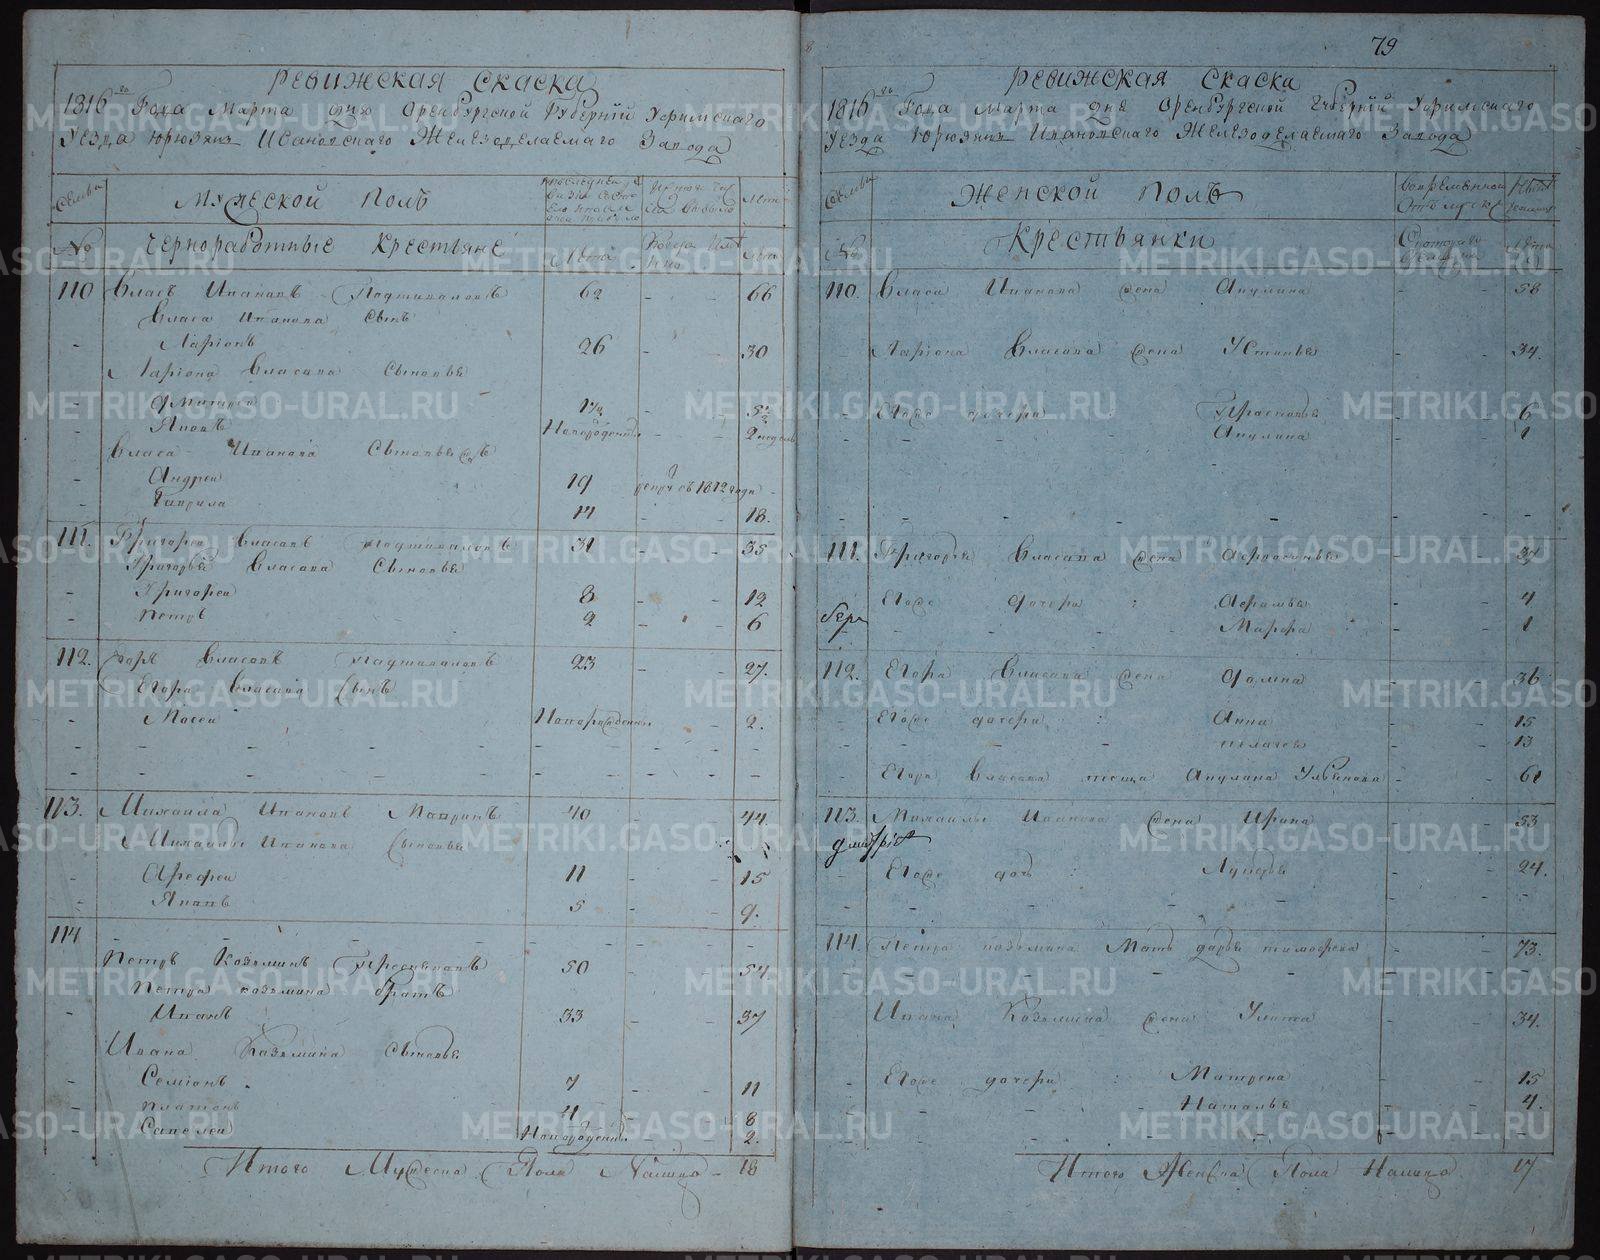 79
РЕВИЖСКАЯ СКАСКА
1816 го Года Марта дня Оренбургской Губернии Уфимскаго
Уезда Юрюзянь Ивановскаго Железоделаемаго Завода
Семьи МУЖЕСКОЙ ПОЛЪ Лета
№ Чорноработные Крестьяне Лета Лета
110 Власъ Ивановъ Подшиваловъ 62 - - 66
Власа Иванова сынъ
- Ларионъ 26 - - 30
Лариона Власова сыновья
- Дмитрей 1½ - - 5½
- Яковъ Новорожденный - - 2 недель
Власа Иванова сыновья жъ
- Андрей 19 рекрутъ 1812 года -
- Гаврила 14 - - 18.
111. Григорей Власовъ Подшиваловъ 31 - - 35
Григорья Власова сыновья
- Григорей 8 - - 12
- Петръ 2 - - 6
112. Егоръ Власовъ Подшиваловъ 23 - - 27.
Егора Власова сынъ
- Мосей Новорожденный - 2.
113. Михаила Ивановъ Мавринъ 40 - - 44
Михайлы Иванова сыновья
- Арефей 11 - - 15
- 5 - - 9.
114
Петръ Козминъ 50 - - 54
Петра Козмина братъ
- Иванъ 33 - - 37
Ивана Козмина сыновья
- Семионъ 7 - - 11
- Платонъ 4 - - 8
- Савелей Новорожденный - - 2.
Итого Мужеска Пола Налицо - 18
РЕВИЖСКАЯ СКАСКА
1816 го Года Марта дня Оренбургской Губернии Уфимскаго
Уезда Юрюзянь Ивановскаго Железоделаемаго Завода
Семьи ЖЕНСКОЙ ПОЛЪ
№ Крестьянки Лета
110. Власа Иванова жена Акулина - - 58
- Лариона Власова жена Устинья - - 34.
- Егоже дочери : Прасковья - - 6
Акулина - - 1
111. Григорья Власова жена Афросинья - -
- Егоже дочери : - - 4
Марфа - - 1
112. Егора Власова жена Домна - - 36
- Егоже дочери : Анна - - 15
Пелагея - - 13
Егора Власова теща Акулина - 61
113. Михайлы Иванова жена Ирина - - 53
- Егоже дочь : - - 24.
114. Петра Козмина Мать Дарья Тимофеева - 73.
- Ивана Козмина жена Улита - - 34.
- Егоже дочери : Матрена - - 15
Наталья - - 4.
Итого Женска Пола Налицо 17
METRIKI.GASO-URAL.RU